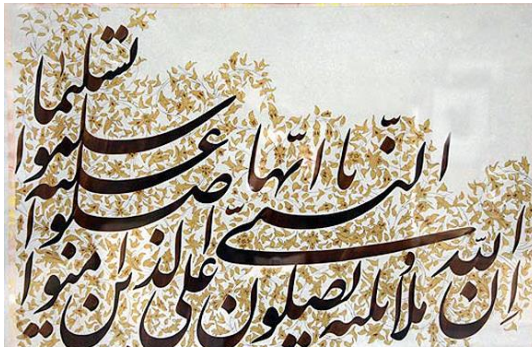 اِن اللّه و ملائکته یصلون علی
النبیّ یا ایّها
الذین امنوا
صلوا
علیه و
سلموا
تسلیما